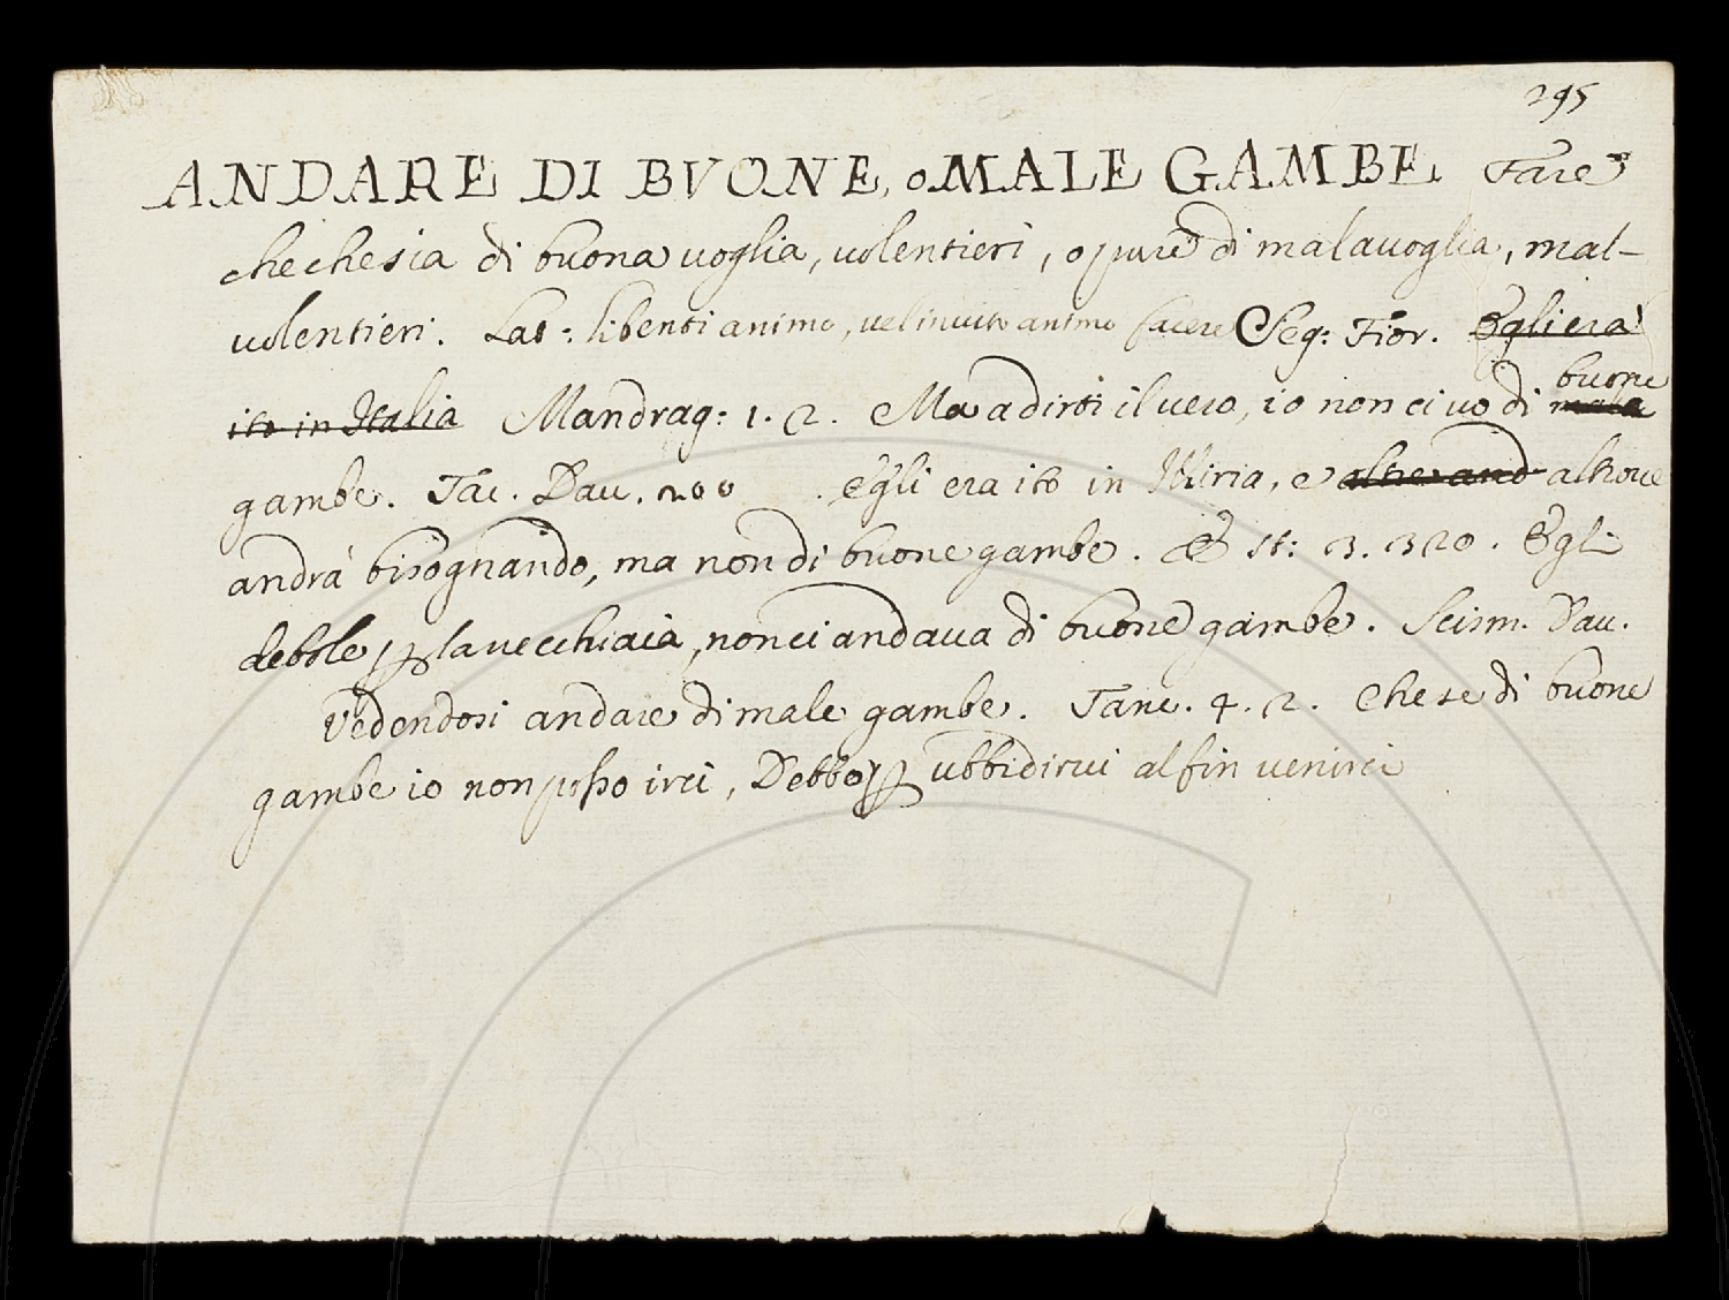 295
ANDARE DI BVONE, o MALE GAMBE. Fare
chechesia di buona uoglia, uolentieri, oppure di malauoglia, mal-
uolentieri. Lat: libenti animo, uel inuito animo facere Seg: Fior. Egli era
ito in Italia Mandrag: 1. 2. Ma a dirti il uero, io non ci uo di mala buone
gambe. Tac. Dau. 200 . Egli era ito in Illiria, e oltre and altroue
andrà bisognando, ma non di buone gambe. & st: 3. 320. Egli
debole p la uecchiaia, non ci andaua di buone gambe. Scism. Dau.
Vedendosi andare di male gambe. Tanc. 4. 2. Che se di buone
gambe io non posso irci, Debbo p ubbidirui alfin uenirci